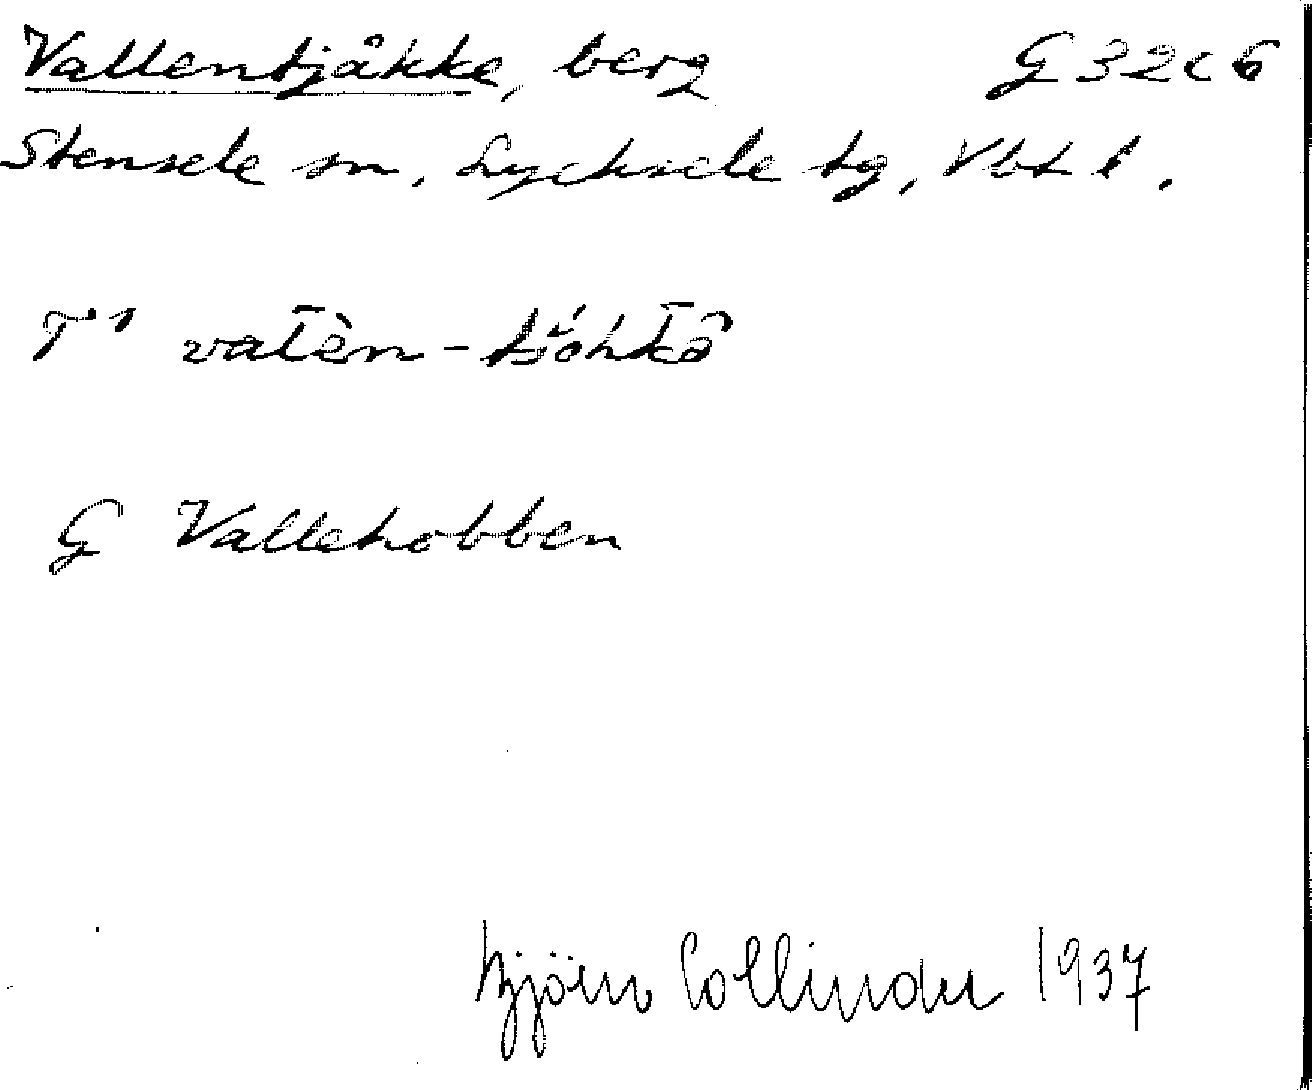 Vallentjåkke, berg G 32c6
Stensele sn, Lycksele tg, Vbtl.
T'1 vaīèn-tšŏ́hk̄ɑ̂
G Vallehobben
Björn Collinder 1937